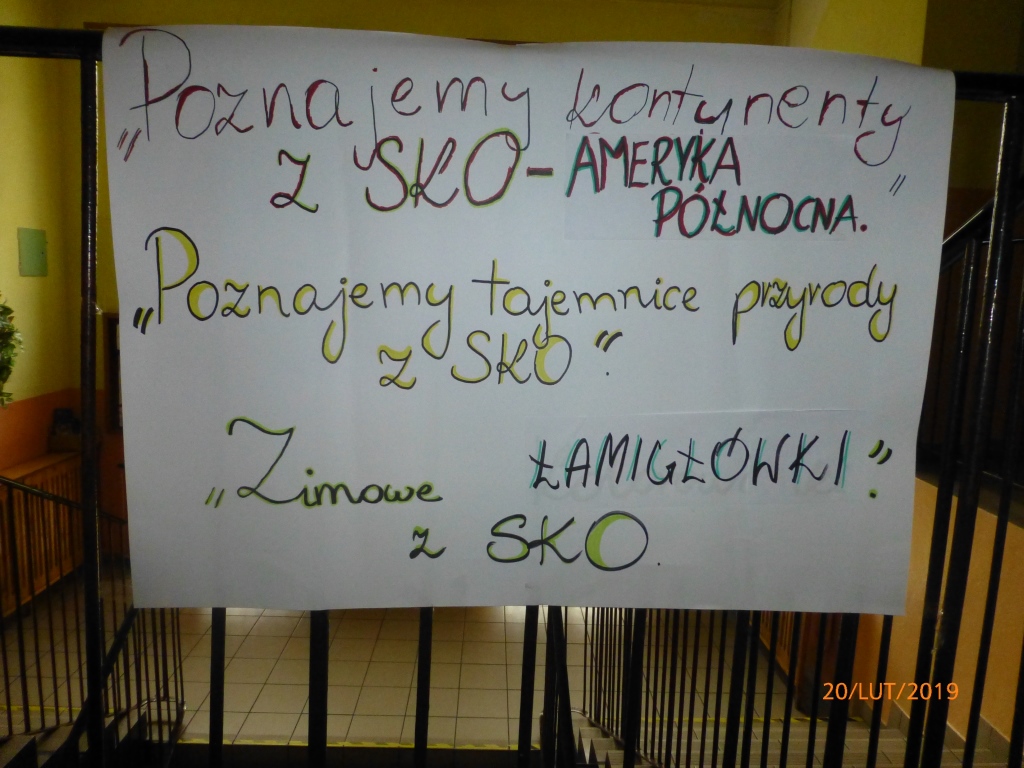 „Poznajemy kontynenty
z SKO - AMERYKA
PÓŁNOCNA."
„Poznajemy tajemnice przyrody
z SKO".
„Zimowe ŁAMIGŁÓWKI".
z SKO.
20/LUT/2019